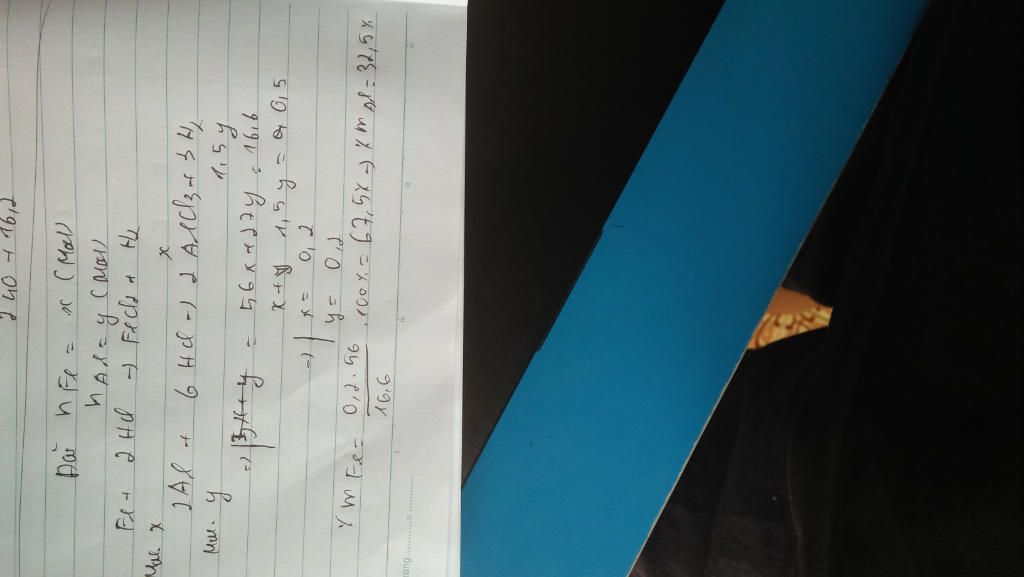 240 + 16,2
Đặt nFe = x (mol)
nAl = y (mol)
Fe + 2HCl → FeCl2 + H2
Mol. x x
2Al + 6HCl → 2AlCl3 + 3H2
Mol. y 1,5y
=> 56x + 27y = 16,6
x + 1,5y = 0,5
=> x = 0,2
y = 0,2
% mFe = 0,2.56 / 16,6 .100% = 67,5% → % mAl = 32,5%